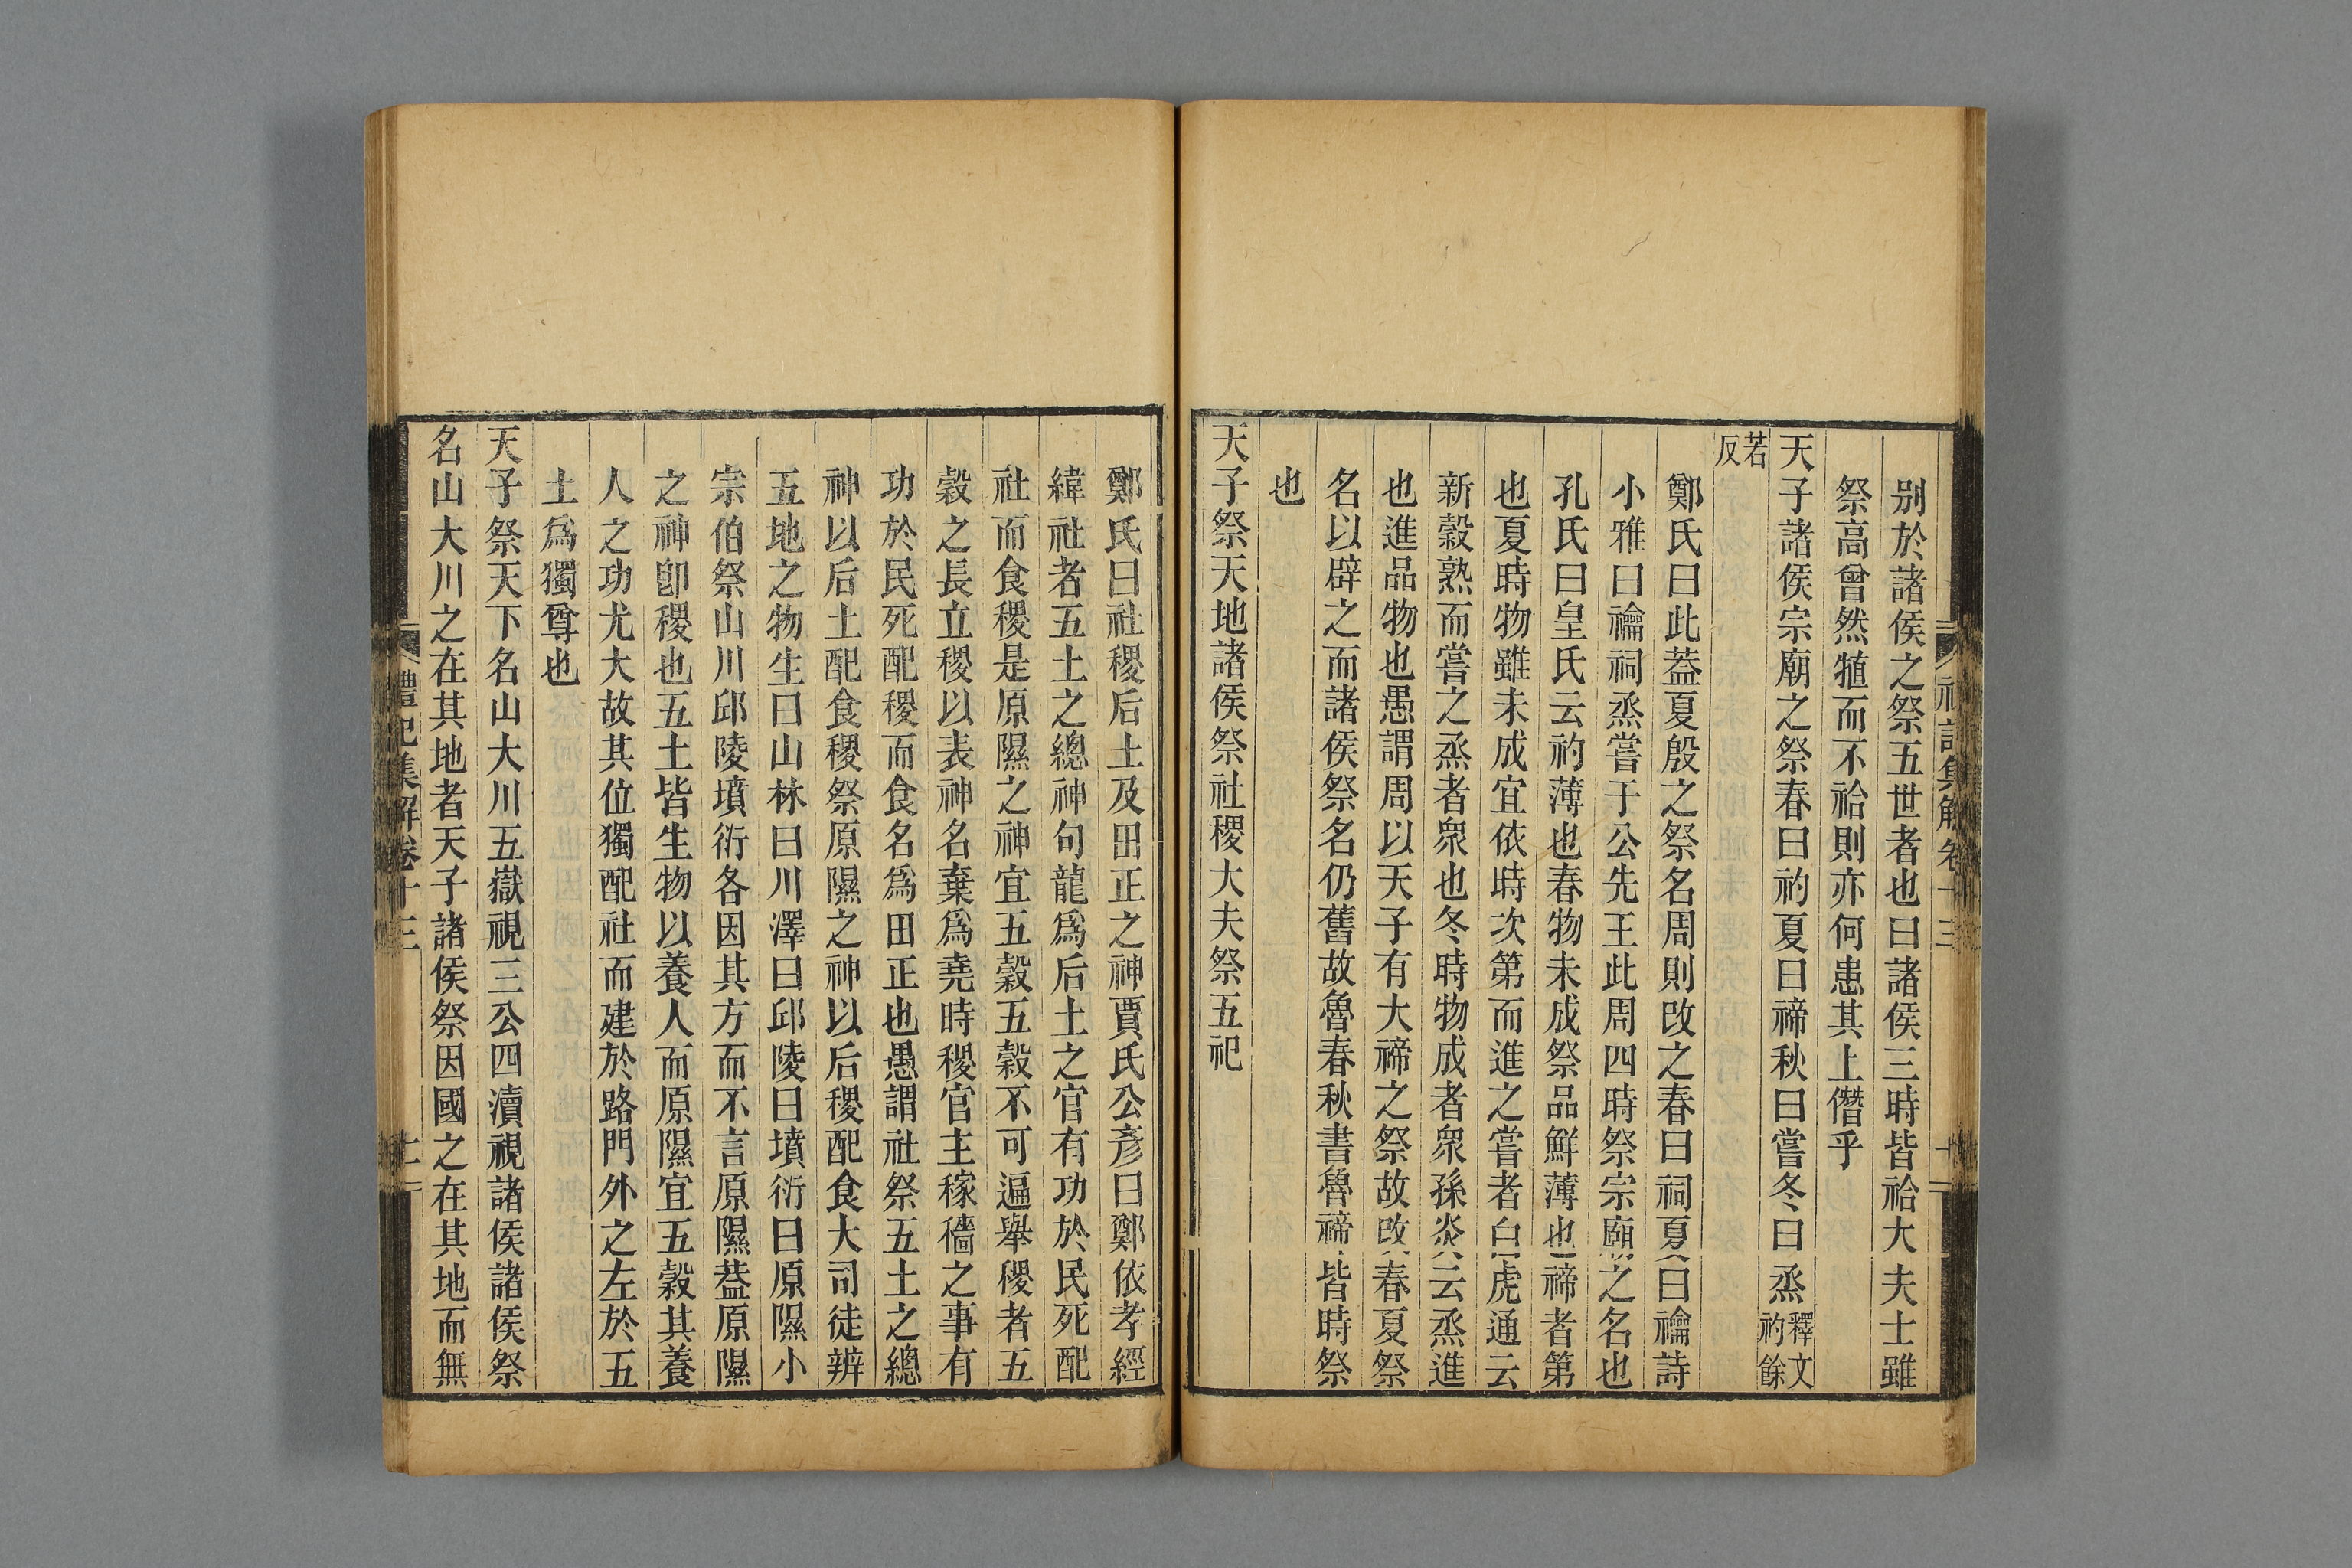 別於諸侯之祭五世者也曰諸侯三時皆祫大夫士雖
祭高曾然犆而不祫則亦何患其上僭乎
天子諸侯宗廟之祭春曰礿夏曰禘秋曰嘗冬曰烝釋文礿餘
若反
鄭氏曰此葢夏殷之祭名周則改之春曰祠夏曰禴詩
小雅曰禴祠烝嘗于公先王此周四時祭宗廟之名也
孔氏曰皇氏云礿薄也春物未成祭品鮮薄也禘者第
也夏時物雖未成宜依時次第而進之嘗者白虎通云
新穀熟而嘗之烝者衆也冬時物成者衆孫炎云烝進
也進品物也愚謂周以天子有大禘之祭故改春夏祭
名以辟之而諸侯祭名仍舊故魯春秋書魯禘皆時祭
也
天子祭天地諸侯祭社稷大夫祭五祀
鄭氏曰社稷后土及田正之神賈氏公彥曰鄭依孝經
緯社者五土之總神句龍爲后土之官有功於民死配
社而食稷是原隰之神宜五穀五穀不可遍舉稷者五
穀之長立稷以表神名棄爲堯時稷官主稼穡之事有
功於民死配稷而食名爲田正也愚謂社祭五土之總
神以后土配食稷祭原隰之神以后稷配食大司徒辨
五地之物生曰山林曰川澤曰邱陵曰墳衍曰原隰小
宗伯祭山川邱陵墳衍各因其方而不言原隰葢原隰
之神卽稷也五土皆生物以養人而原隰宜五穀其養
人之功尤大故其位獨配社而建於路門外之左於五
土爲獨尊也
天子祭天下名山大川五嶽視三公四瀆視諸侯諸侯祭
名山大川之在其地者天子諸侯祭因國之在其地而無
禮記集解卷十三